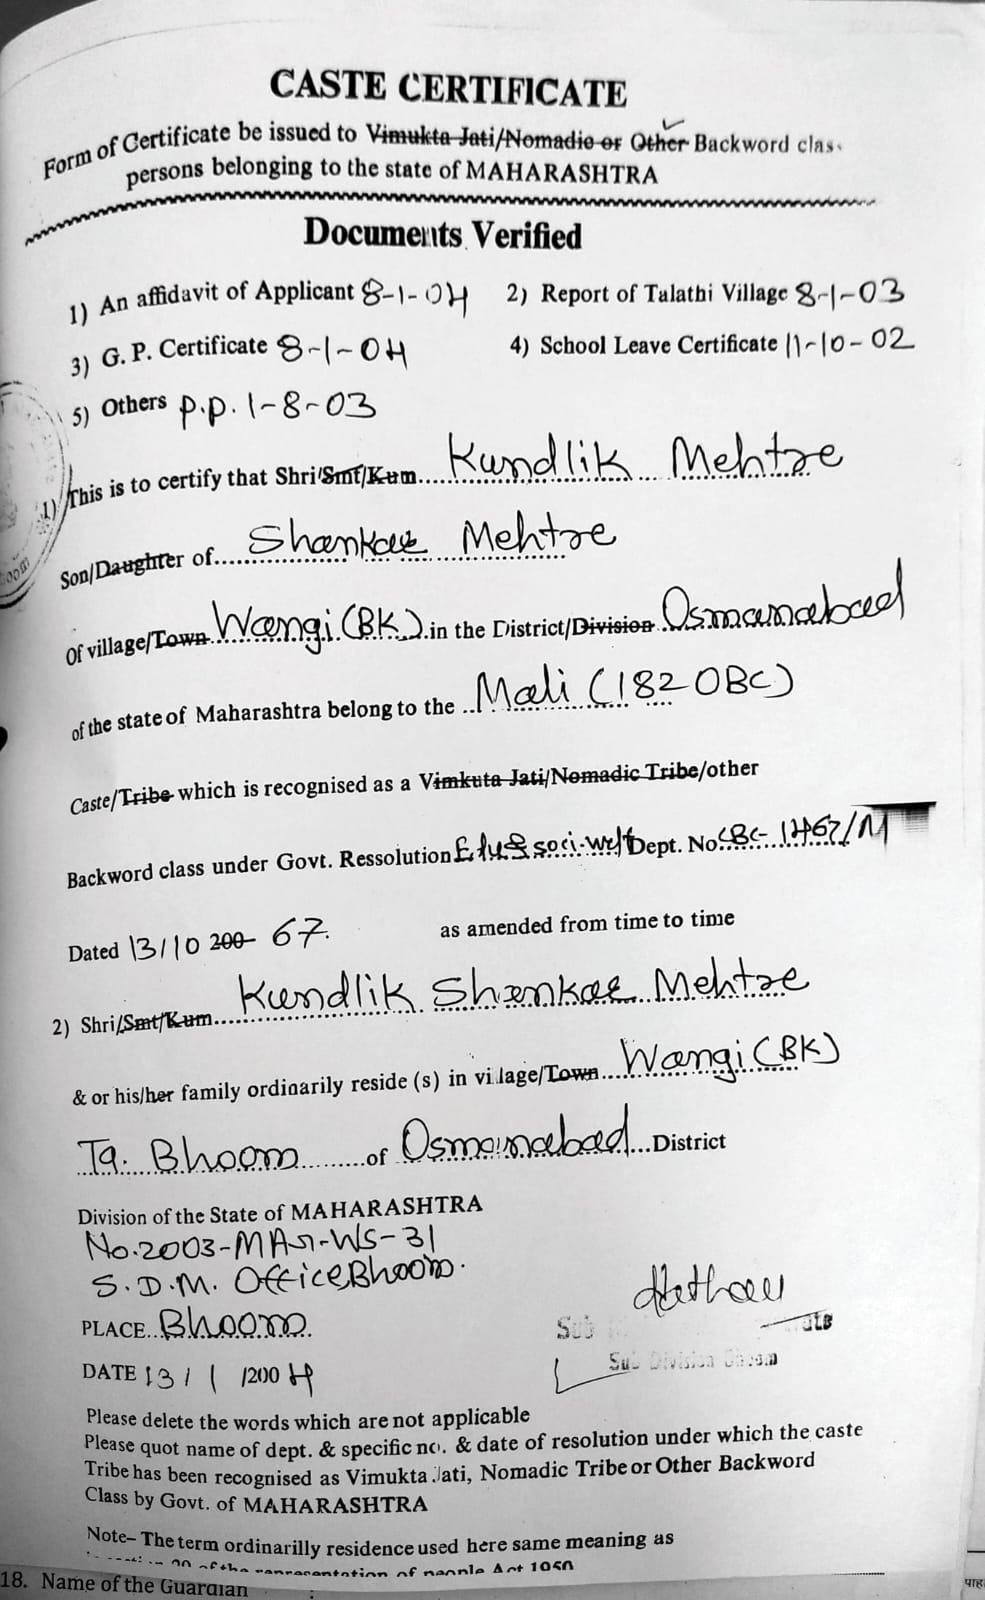 CASTE CERTIFICATE
Form of Certificate be issued to Vimukta Jati/Nomadic or Other Backword clas
persons belonging to the state of MAHARASHTRA
Documents Verified
1) An affidavit of Applicant 8-1-04 2) Report of Talathi Village 8-1-03
3) G. P. Certificate 8-1-04 4) School Leave Certificate 11-10-02
5) Others P.P. 1-8-03
1) This is to certify that Shri/Smt/Kum....Kundlik Mehtre
Son/Daughter of....Shankar Mehtre
Of village/Town Wangi (BK) in the District/Division Osmanabad
of the state of Maharashtra belong to the ..Mali (182 OBC)
Caste/Tribe which is recognised as a Vimkuta Jati/Nomadic Tribe/other
Backword class under Govt. Ressolution Edu & soci. welf Dept. No CBC- 1467/M
Dated 13/10 200- 67. as amended from time to time
2) Shri/Smt/Kum....Kundlik Shankar Mehtre
& or his/her family ordinarily reside (s) in village/Town...Wangi (BK)
Tq. Bhoom.......of Osmanabad...District
Division of the State of MAHARASHTRA
No. 2003-MAG-WS-31
S.D.M. Office Bhoom.
PLACE..Bhoom.
Sub
DATE 13/1/2004
Sub Division Bhoom
Please delete the words which are not applicable
Please quot name of dept. & specific no. & date of resolution under which the caste
Tribe has been recognised as Vimukta Jati, Nomadic Tribe or Other Backword
Class by Govt. of MAHARASHTRA
Note- The term ordinarilly residence used here same meaning as
20 of the representation of people Act 1950
18. Name of the Guardian